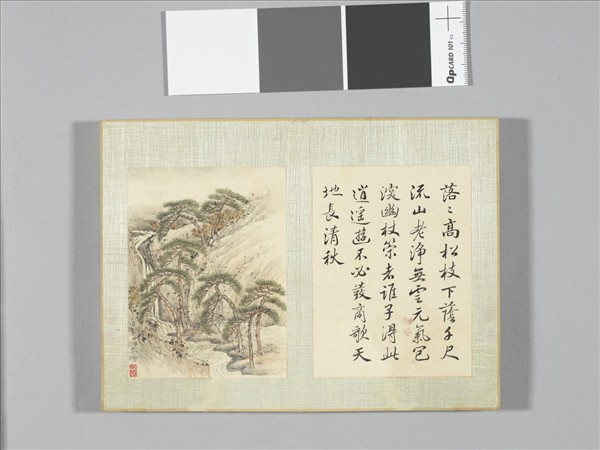 落〻高松枝下蔭千尺
流山老淨無雲元氣家
淡幽杖策者誰子得此
逍遥遊不必發商歌天
地長清秋
QPCARD 101 v2